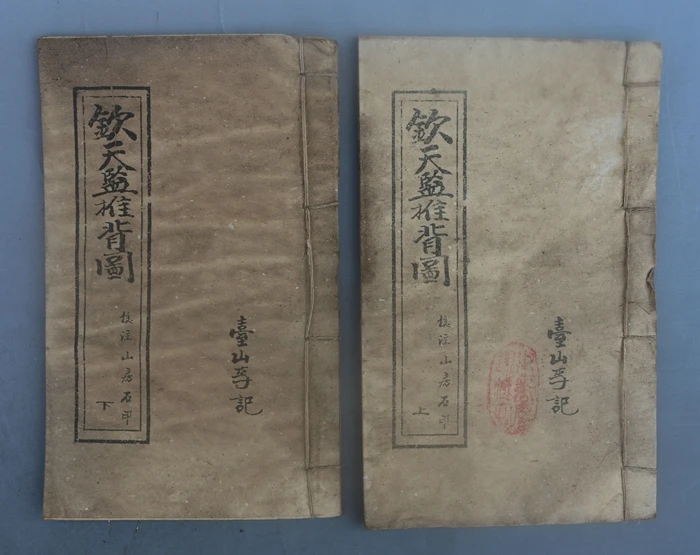 欽天監推背圖
山房石印
下
臺山李記
欽天監推背圖
山房石印
上
臺山李記